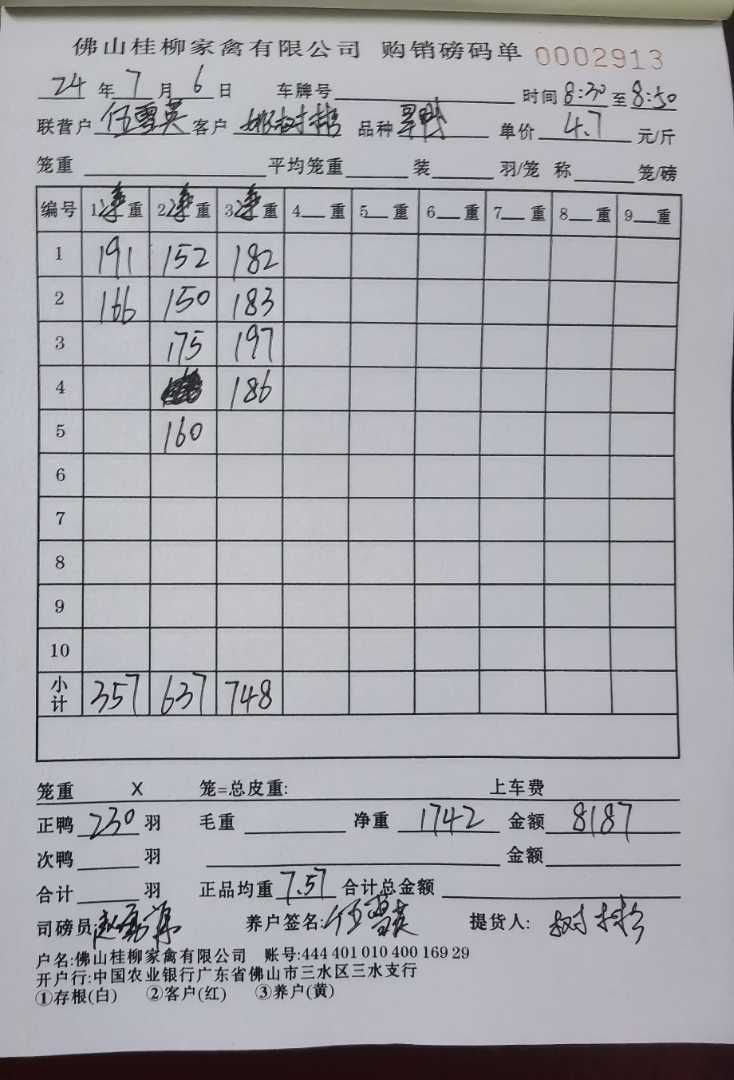 佛山桂柳家禽有限公司 购销磅码单 0002913
24 年 7 月 6 日 车牌号 时间 8:30 至 8:50
联营户 伍雪英 客户 树彬 品种 单价 4.7 元/斤
笼重 平均笼重 装 羽/笼 称 笼/磅
编号 1净重 2净重 3净重 4 重 5 重 6 重 7 重 8 重 9 重
1 191 152 182
2 166 150 183
3 175 197
4 186
5 160
6
7
8
9
10
小计 357 637 748
笼重 X 笼=总皮重: 上车费
正鸭 230 羽 毛重 净重 1742 金额 8187
次鸭 羽 金额
合计 羽 正品均重 7.57 合计总金额
司磅员: 养户签名: 伍雪英 提货人: 树彬
户名:佛山桂柳家禽有限公司 账号:444 401 010 400 169 29
开户行:中国农业银行广东省佛山市三水区三水支行
①存根(白) ②客户(红) ③养户(黄)